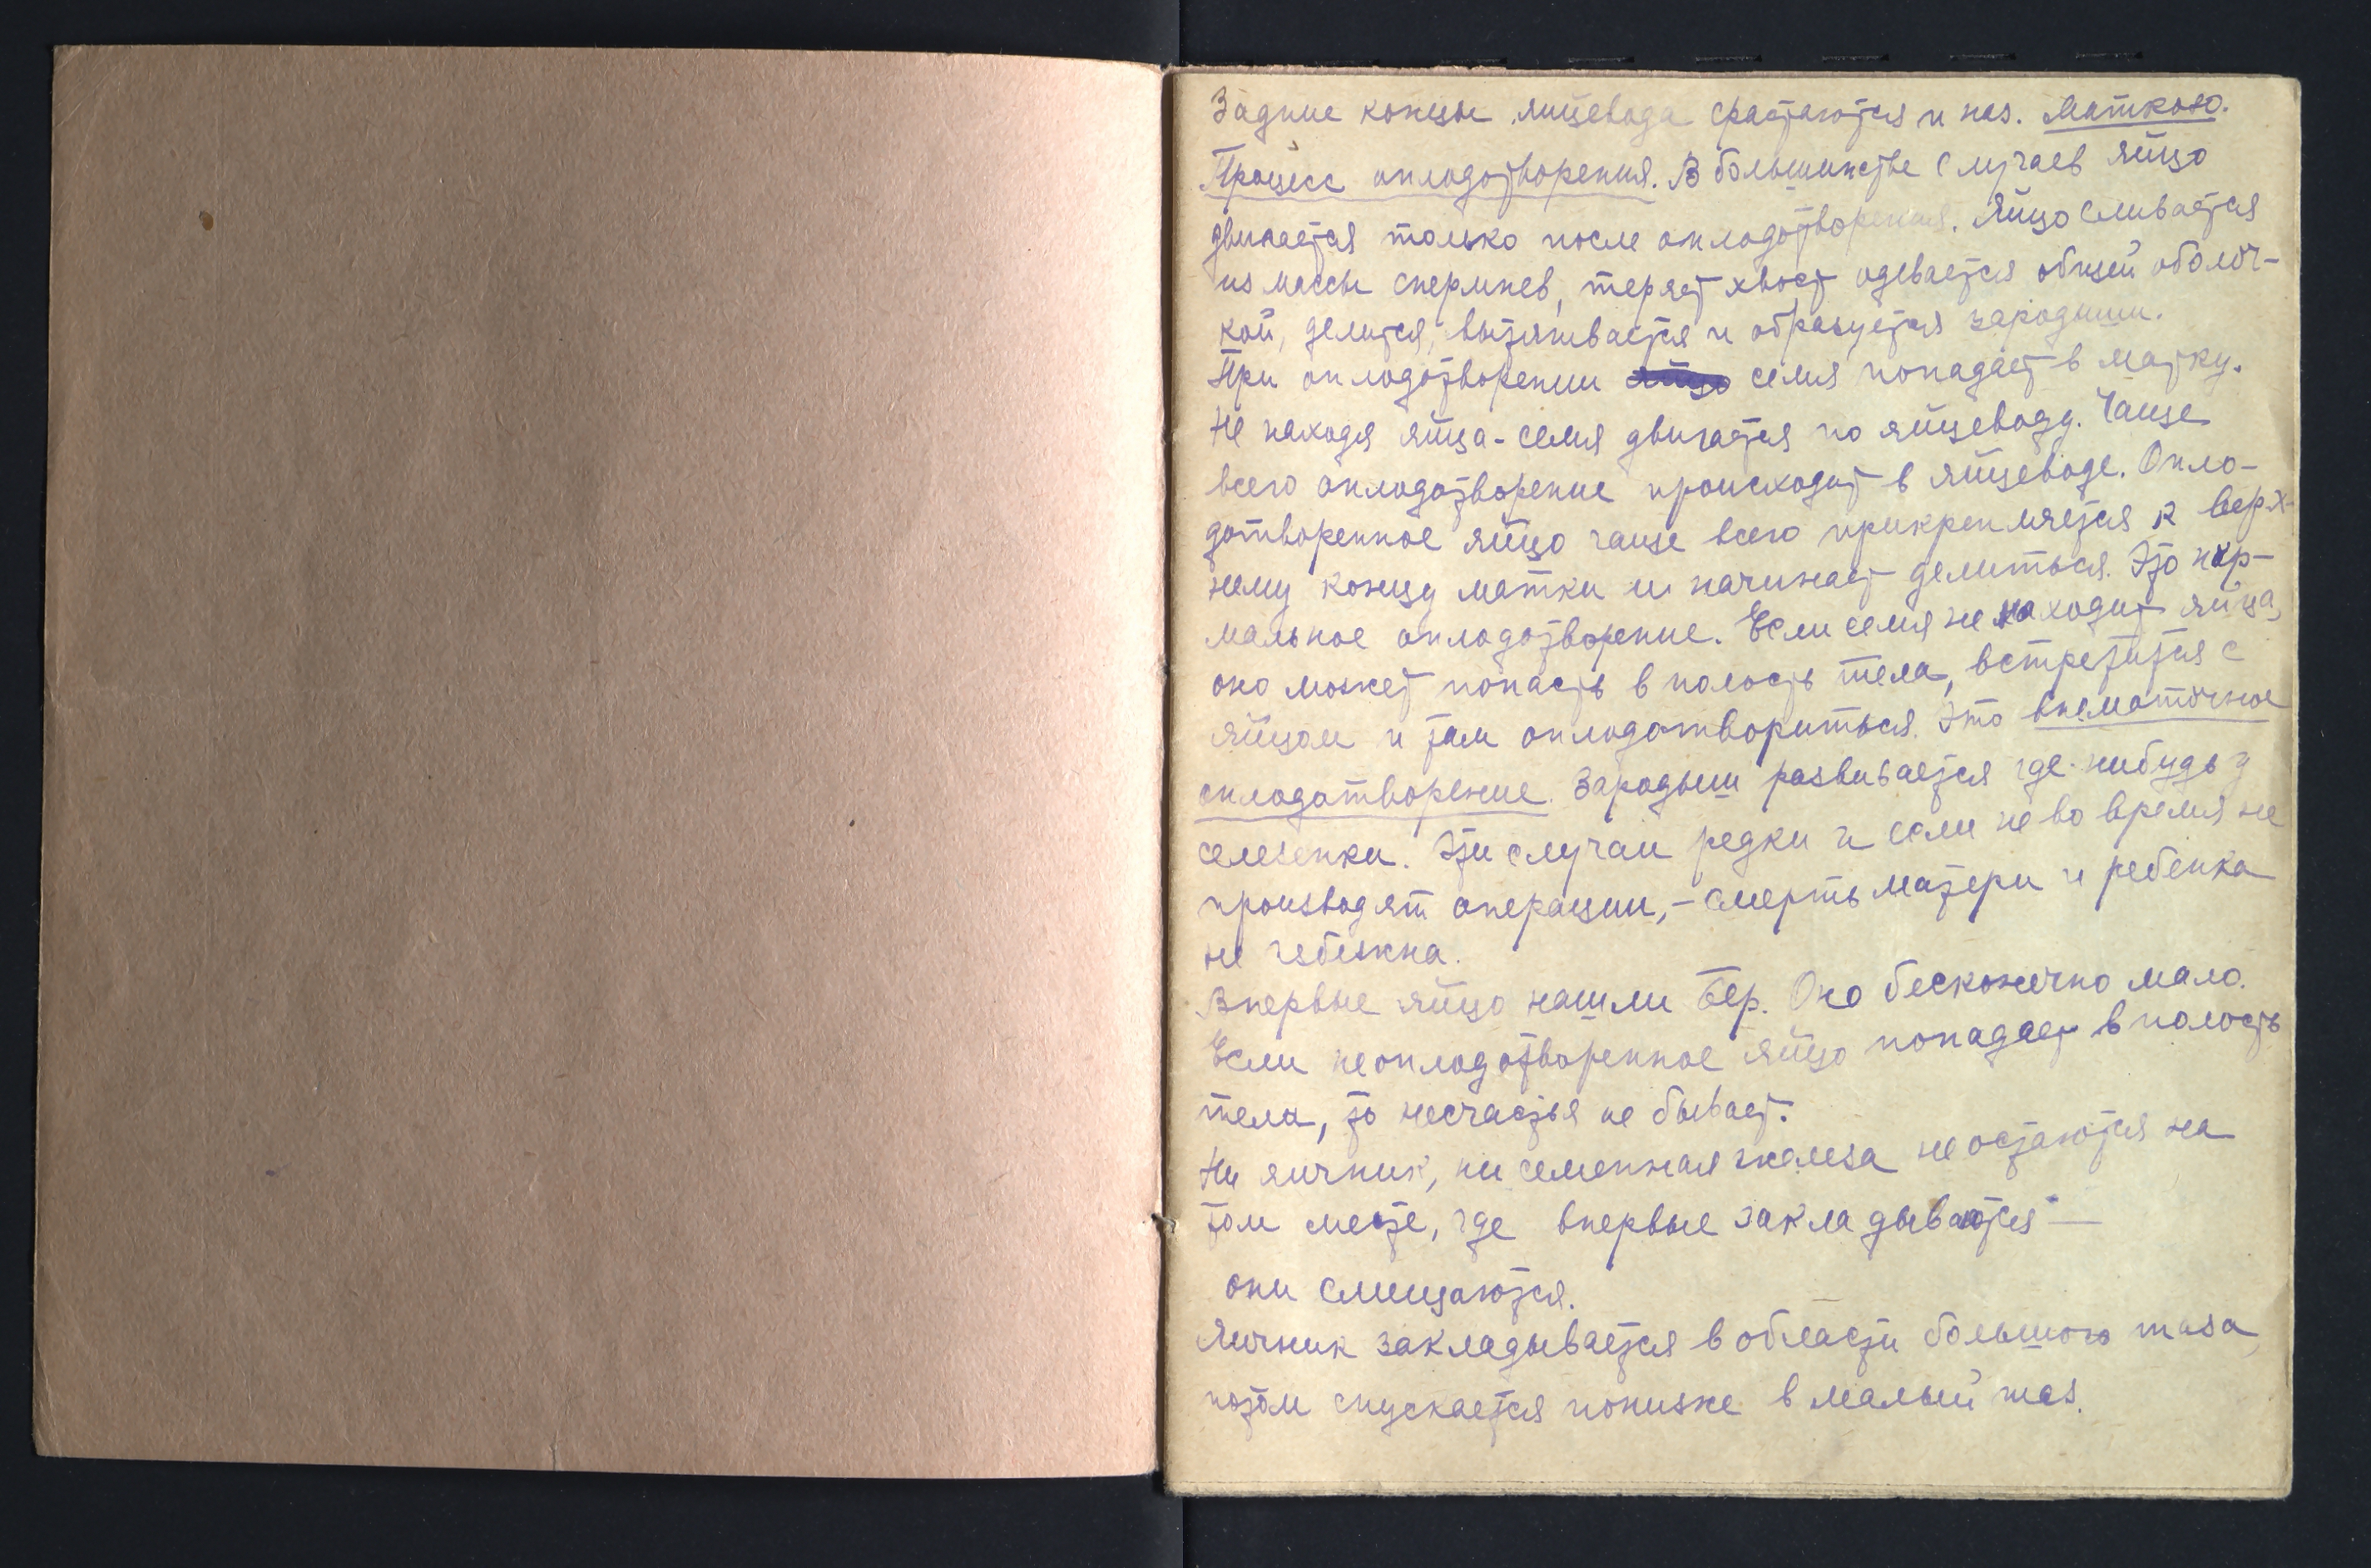 Задние концы яйцевода срастаются и наз. маткою.
Процесс оплодотворения. В большинстве случаев яйцо
двигается только после оплодотворения. Яйцо сливается
из массы спермиев, теряет хвост одевается общей оболоч-
кой, делится, вытягивается и образуется зародыш.
При оплодотворении семя попадает в матку.
Не находя яйца - семя двигается по яйцеводу. Чаще
всего оплодотворение происходит в яйцеводе. Опло-
дотворенное яйцо чаще всего прикрепляется к верх-
нему концу матки и начинает делиться. Это нор-
мальное оплодотворение. Если семя не находит яйца,
оно может попасть в полость тела, встретится с
яйцом и там оплодотвориться. Это внематочное
оплодотворение. Зародыш развивается где-нибудь у
селезенки. Эти случаи редки и если не во время не
производят операции, - смерть матери и ребенка
не избежна.
Впервые яйцо нашли Бер. Оно бесконечно мало.
Если неоплодотворенное яйцо попадает в полость
тела, то несчастья не бывает.
Ни яичник, ни семенная железа не остаются на
том месте, где впервые закладываются —
они смещаются.
Яичник закладывается в области большого таза,
потом спускается пониже в малый таз.